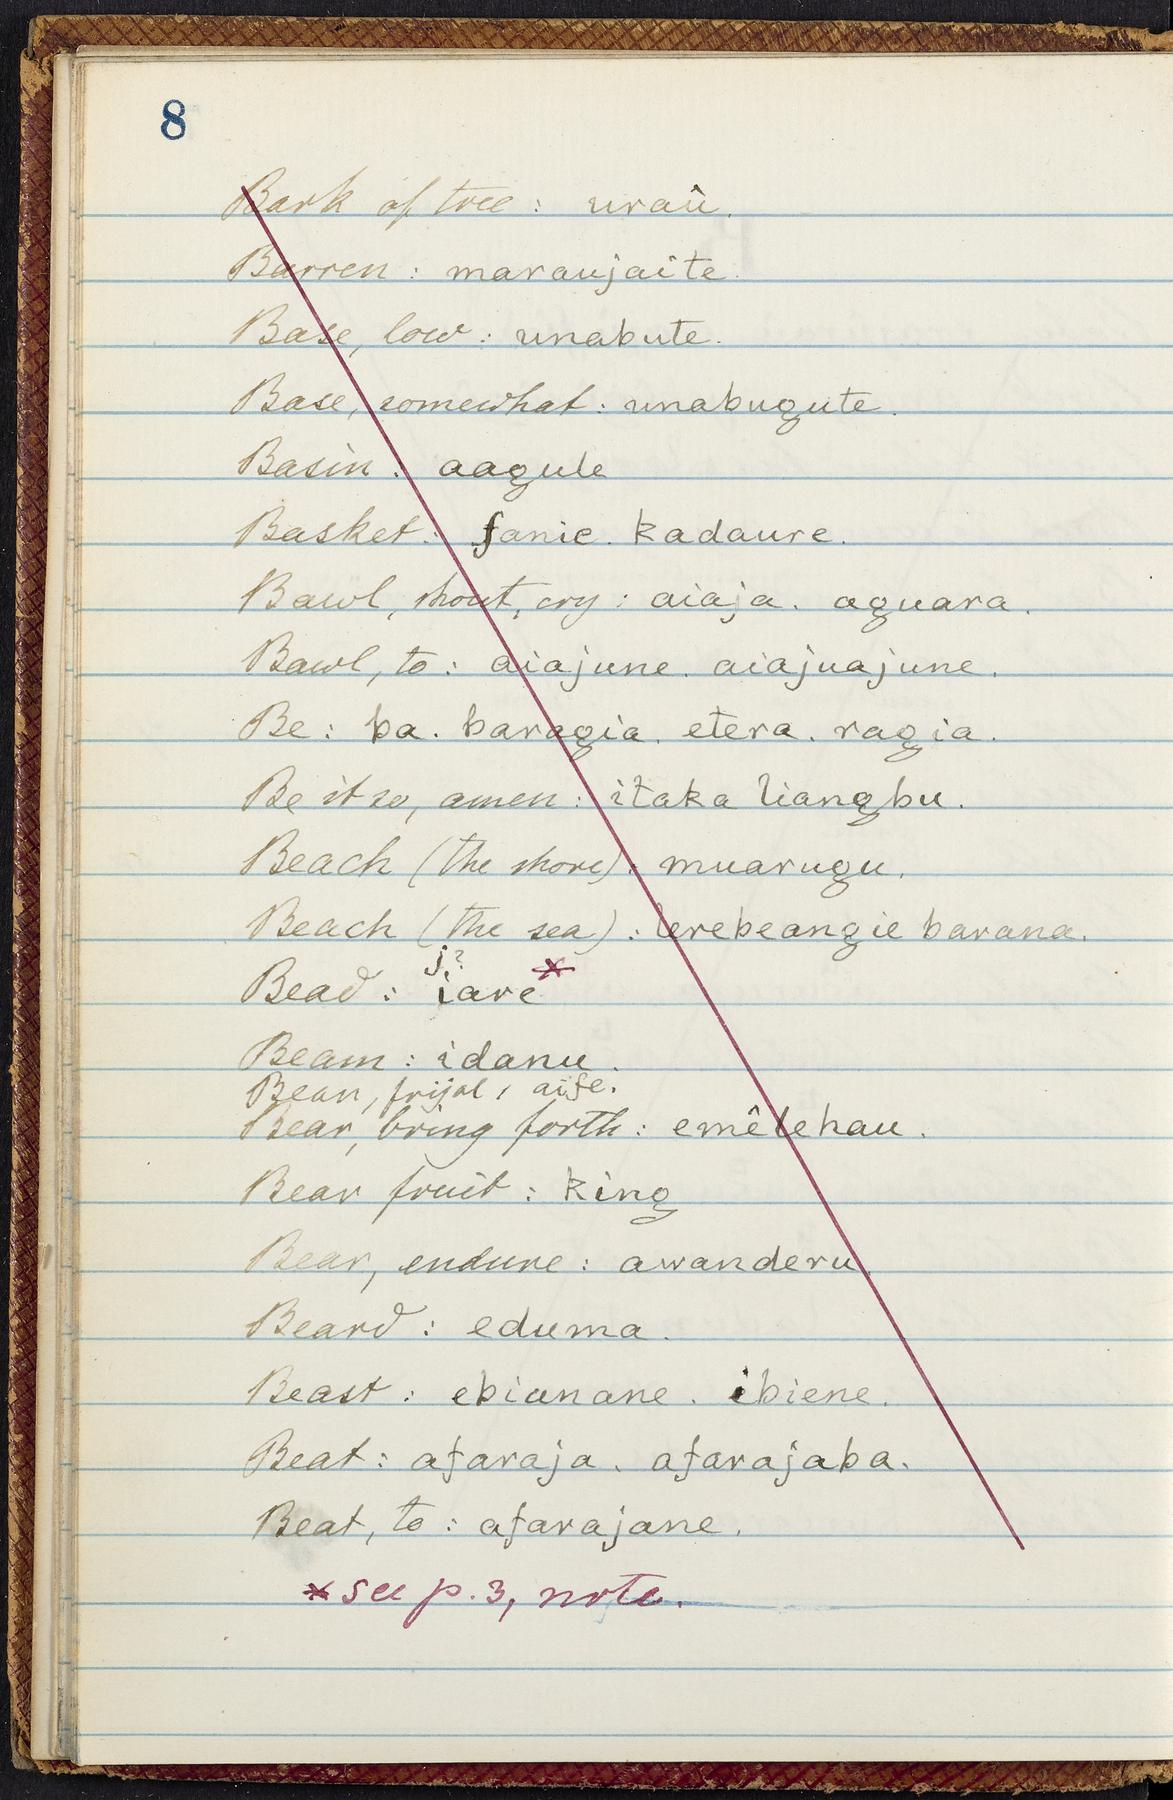 8
Bark of tree : uraû.
Barren : maraujaite.
Base, low : unabute.
Base, somewhat : unabugute.
Basin : aagule
Basket : fanie. kadaure.
Bawl, shout, cry : aiaja. aguara.
Bawl, to : aiajune. aiajuajune.
Be : ba. baragia. etera. ragia.
Be it so, amen : itaka liangbu.
Beach (the shore) : muarugu.
Beach (the sea) : lerebeangie barana.
j?
Bead : iare *
Beam : idanu.
Bean, frijol, aife.
Bear, bring forth : emêlehau.
Bear fruit : king
Bear, endure : awanderu.
Beard : eduma.
Beast : ebiunane. ibiene.
Beat : afaraja. afarajaba.
Beat, to : afarajane.
* see p. 3, note.